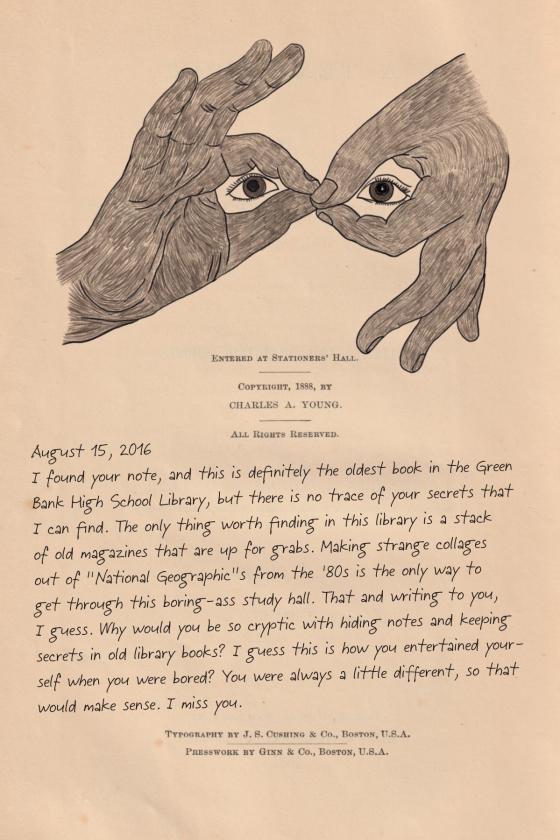 Entered at Stationers' Hall.
Copyright, 1888, by
CHARLES A. YOUNG.
All Rights Reserved.
August 15, 2016
I found your note, and this is definitely the oldest book in the Green
Bank High School Library, but there is no trace of your secrets that
I can find. The only thing worth finding in this library is a stack
of old magazines that are up for grabs. Making strange collages
out of "National Geographic"s from the '80s is the only way to
get through this boring-ass study hall. That and writing to you,
I guess. Why would you be so cryptic with hiding notes and keeping
secrets in old library books? I guess this is how you entertained your-
self when you were bored? You were always a little different, so that
would make sense. I miss you.
Typography by J. S. Cushing & Co., Boston, U.S.A.
Presswork by Ginn & Co., Boston, U.S.A.